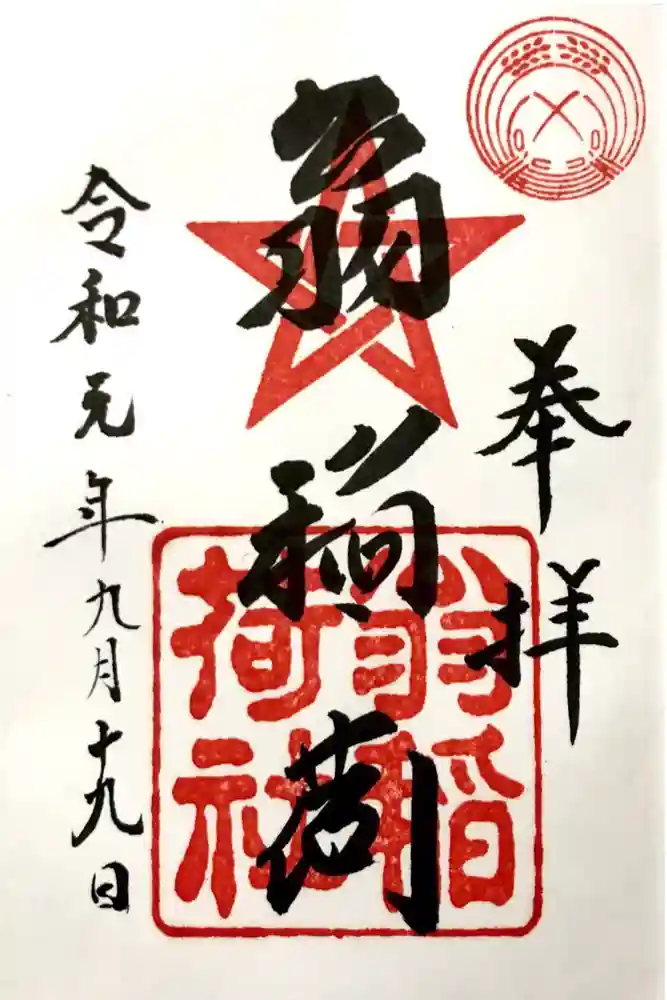 奉拝
翁稲荷
翁稲荷社
令和元年九月十九日